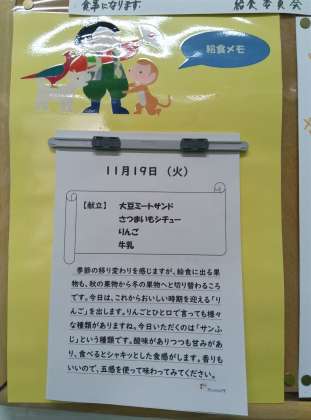 食事になります。
給食委員会
給食メモ
11月19日（火）
【献立】 大豆ミートサンド
さつまいもシチュー
りんご
牛乳
季節の移り変わりを感じますが、給食に出る果
物も、秋の果物から冬の果物へと切り替わるころ
です。今日は、これからおいしい時期を迎える「り
んご」を出します。りんごとひと口で言っても様々
な種類がありますね。今日いただくのは「サンふ
じ」という種類です。酸味がありつつも甘みがあ
り、食べるとシャキッとした食感がします。香りも
いいので、五感を使って味わってみてください。